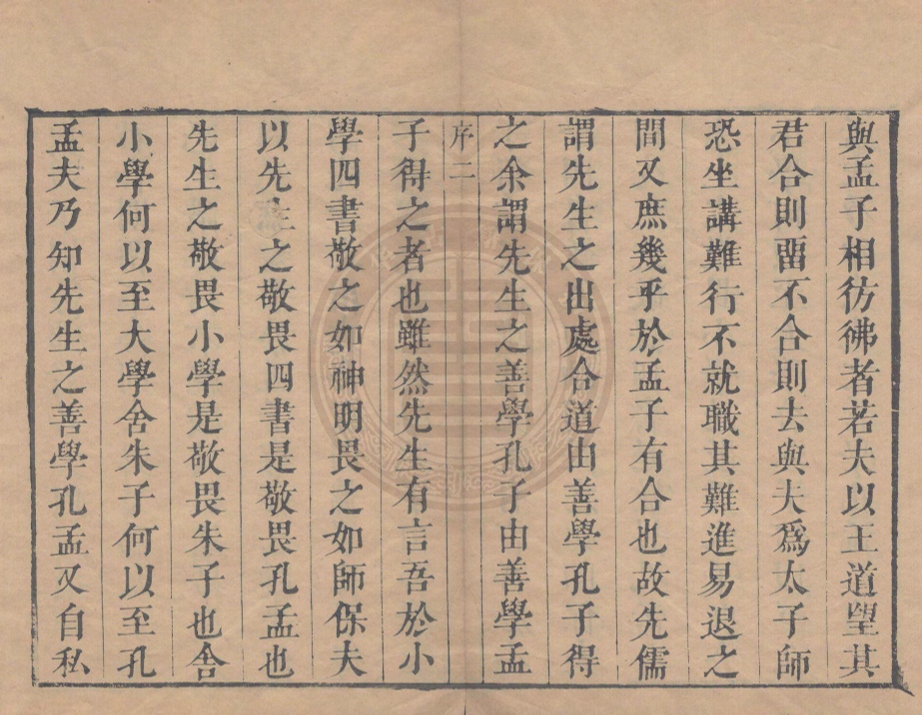 與孟子相彷彿者若夫以王道望其
君合則畱不合則去與夫爲太子師
恐坐講難行不就職其難進易退之
間又庶幾乎於孟子有合也故先儒
謂先生之出處合道由善學孔子得
之余謂先生之善學孔子由善學孟
序二
子得之者也雖然先生有言吾於小
學四書敬之如神明畏之如師保夫
以先生之敬畏四書是敬畏孔孟也
先生之敬畏小學是敬畏朱子也舍
小學何以至大學舍朱子何以至孔
孟夫乃知先生之善學孔孟又自私